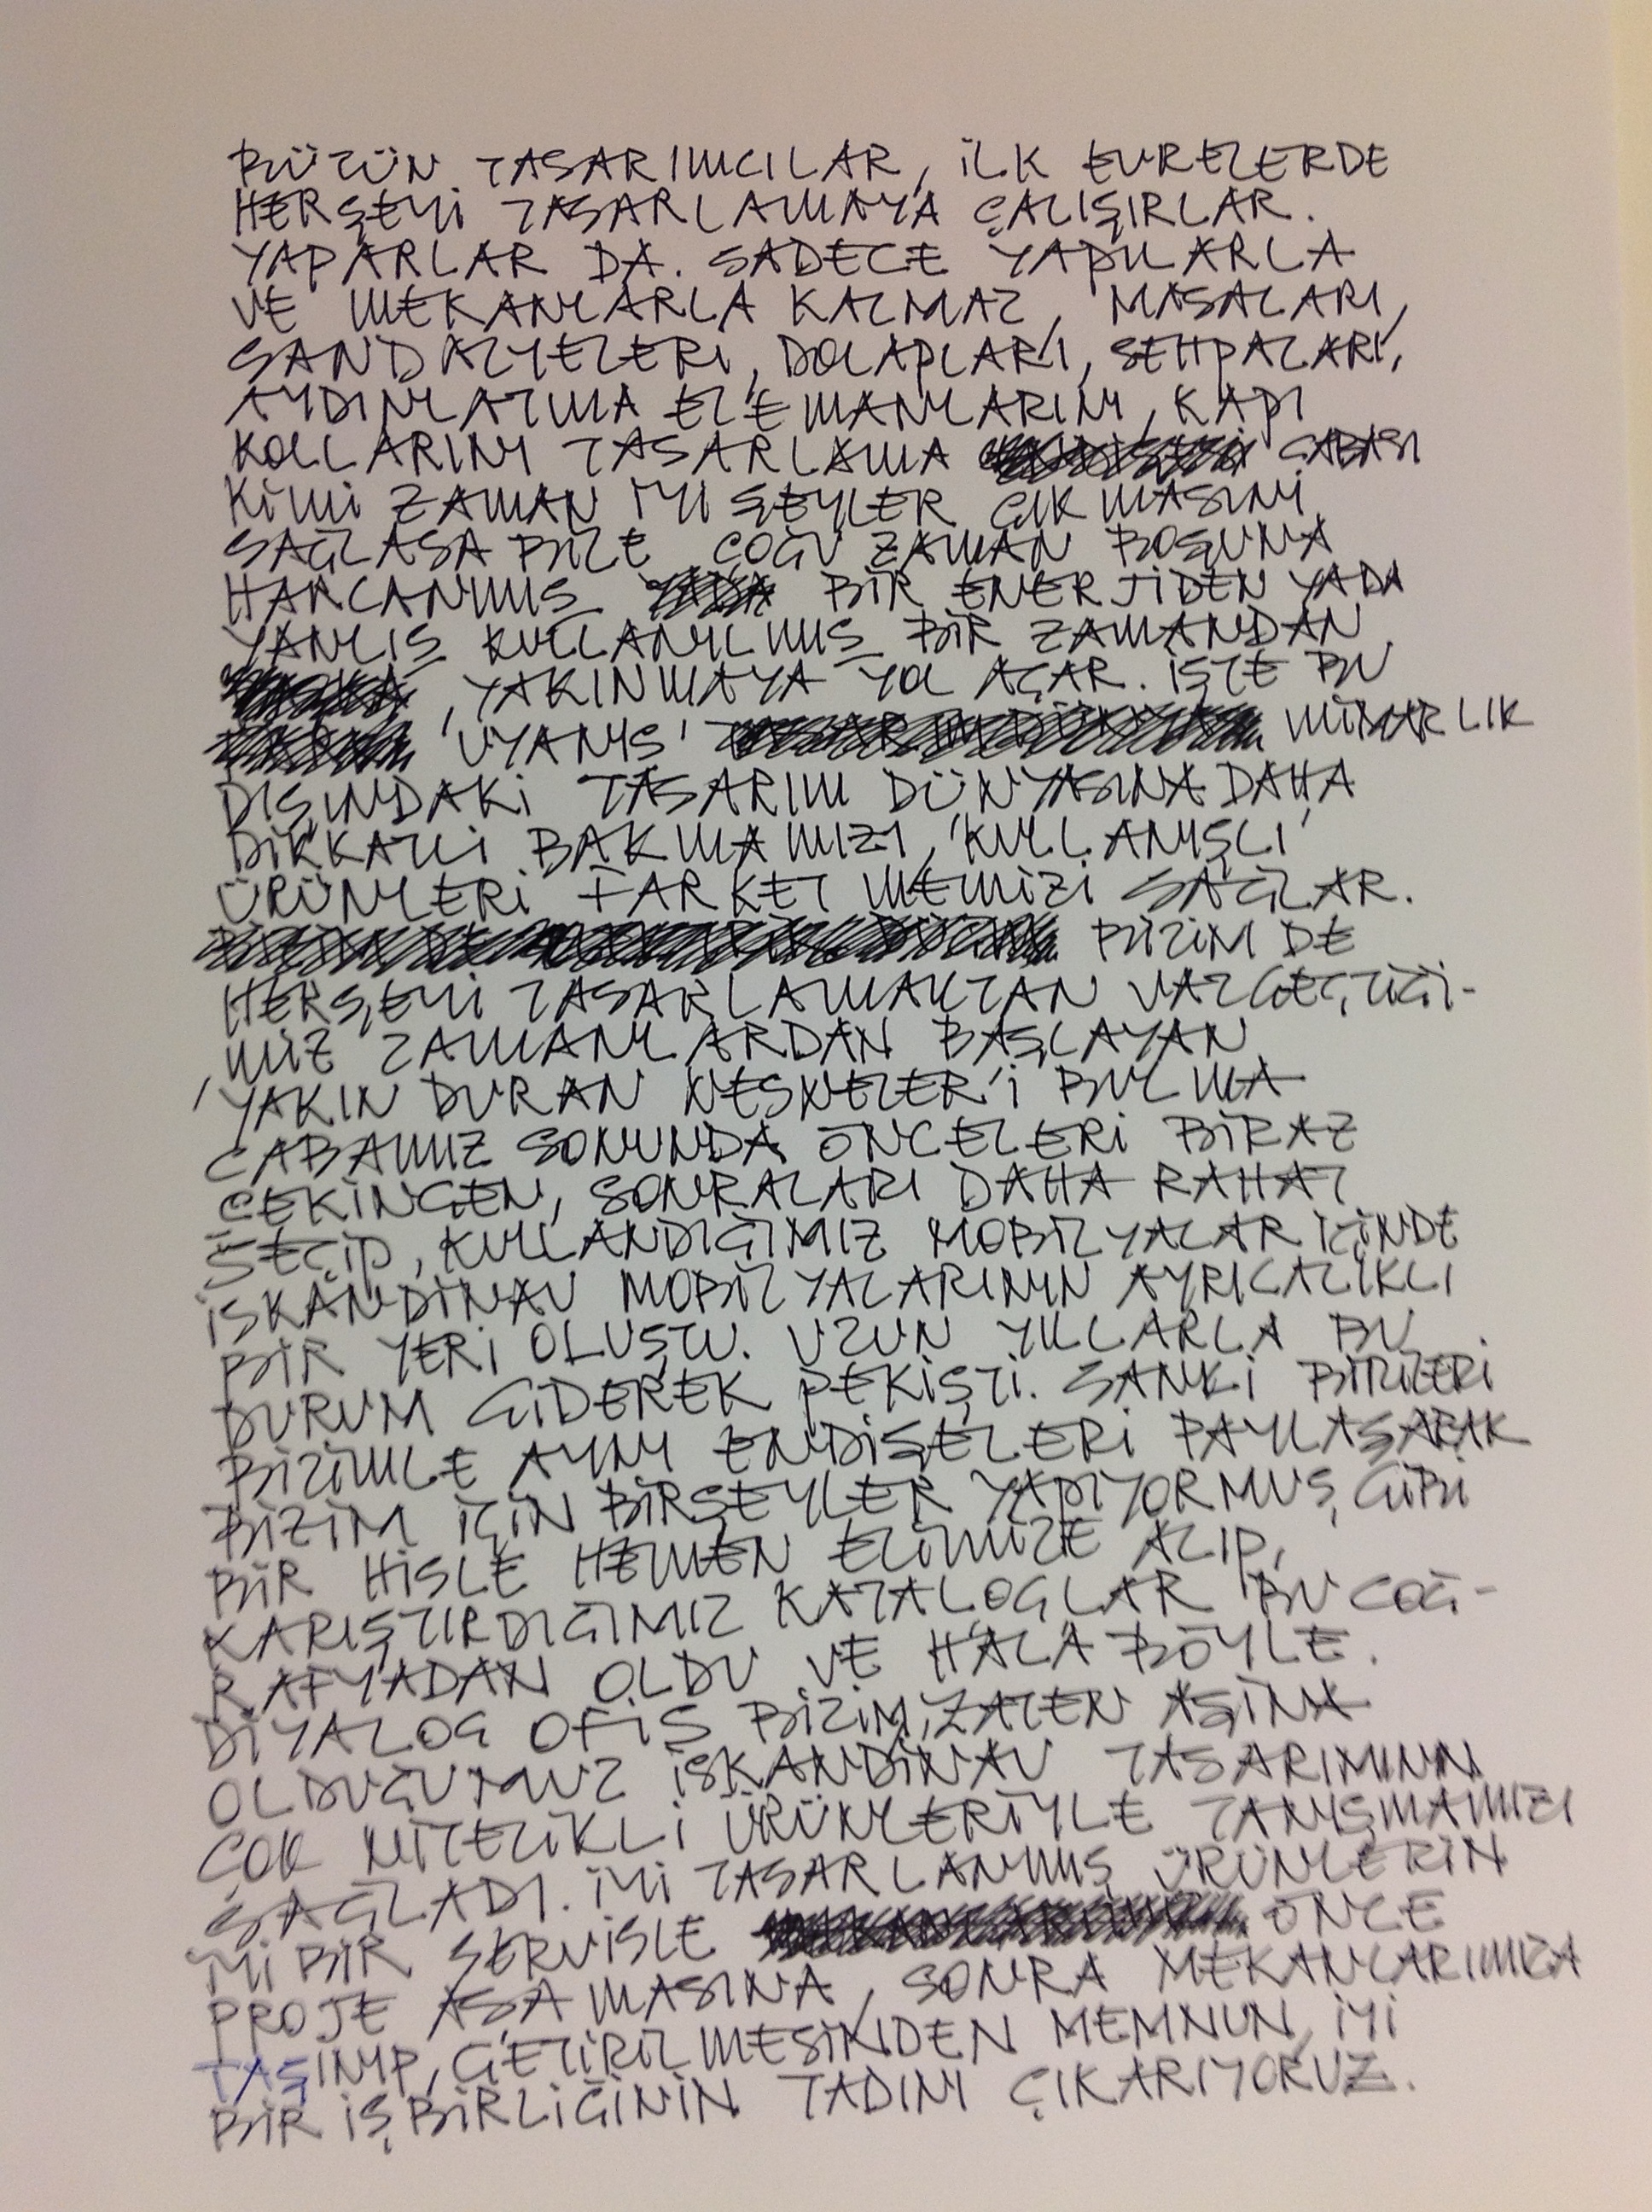 BÜTÜN TASARIMCILAR, İLK EVRELERDE
HERŞEYİ TASARLAMAYA ÇALIŞIRLAR.
YAPARLAR DA. SADECE YAPILARLA
VE MEKANLARLA KALMAZ, MASALARI,
SANDALYELERİ, DOLAPLARI, SEHPALARI,
AYDINLATMA ELEMANLARINI, KAPI
KOLLARINI TASARLAMA ÇABASI
KİMİ ZAMAN İYİ ŞEYLER ÇIKMASINI
SAĞLASA BİLE ÇOĞU ZAMAN BOŞUNA
HARCANMIŞ BİR ENERJİDEN YADA
YANLIŞ KULLANILMIŞ BİR ZAMANDAN
YAKINMAYA YOL AÇAR. İŞTE BU
'UYANIŞ' MİMARLIK
DIŞINDAKİ TASARIM DÜNYASINA DAHA
DİKKATLİ BAKMAMIZI, 'KULLANIŞLI'
ÜRÜNLERİ FARKETMEMİZİ SAĞLAR.
BİZİM DE
HERŞEYİ TASARLAMAKTAN VAZGEÇTİĞİ-
MİZ ZAMANLARDAN BAŞLAYAN
'YAKIN DURAN NESNELER'İ BULMA
ÇABAMIZ SONUNDA ÖNCELERİ BİRAZ
ÇEKİNGEN, SONRALARI DAHA RAHAT
SEÇİP, KULLANDIĞIMIZ MOBİLYALAR İÇİNDE
İSKANDİNAV MOBİLYALARININ AYRICALIKLI
BİR YERİ OLUŞTU. UZUN YILLARLA BU
DURUM GİDEREK PEKİŞTİ. SANKİ BİRİLERİ
BİZİMLE AYNI ENDİŞELERİ PAYLAŞARAK
BİZİM İÇİN BİRŞEYLER YAPIYORMUŞ GİBİ
BİR HİSLE HEMEN ELİMİZE ALIP,
KARIŞTIRDIĞIMIZ KATALOGLAR BU COĞ-
RAFYADAN OLDU VE HALA BÖYLE.
DİYALOG OFİS BİZİM, ZATEN AŞİNA
OLDUĞUMUZ İSKANDİNAV TASARIMININ
ÇOK NİTELİKLİ ÜRÜNLERİYLE TANIŞMAMIZI
SAĞLADI. İYİ TASARLANMIŞ ÜRÜNLERİN
İYİ BİR SERVİSLE ÖNCE
PROJE AŞAMASINA, SONRA MEKANLARIMIZA
TAŞINIP, GETİRİLMESİNDEN MEMNUN, İYİ
BİR İŞBİRLİĞİNİN TADINI ÇIKARIYORUZ.